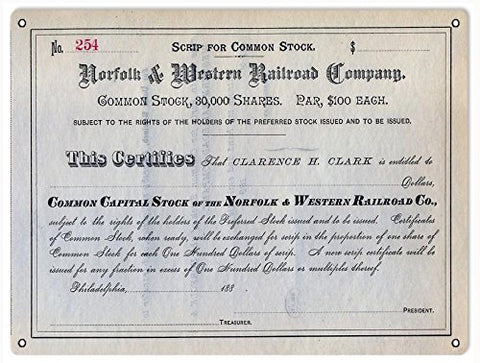 No. 254 SCRIP FOR COMMON STOCK. $
Norfolk & Western Railroad Company.
COMMON STOCK, 30,000 SHARES. PAR, $100 EACH.
SUBJECT TO THE RIGHTS OF THE HOLDERS OF THE PREFERRED STOCK ISSUED AND TO BE ISSUED.
This Certifies That CLARENCE H. CLARK is entitled to
Dollars,
COMMON CAPITAL STOCK OF THE NORFOLK & WESTERN RAILROAD CO.,
subject to the rights of the holders of the Preferred Stock issued and to be issued. Certificates
of Common Stock, when ready, will be exchanged for scrip in the proportion of one share of
Common Stock for each One Hundred Dollars of scrip. A new scrip certificate will be
issued for any fraction in excess of One Hundred Dollars or multiples thereof.
Philadelphia, 188
PRESIDENT.
TREASURER.